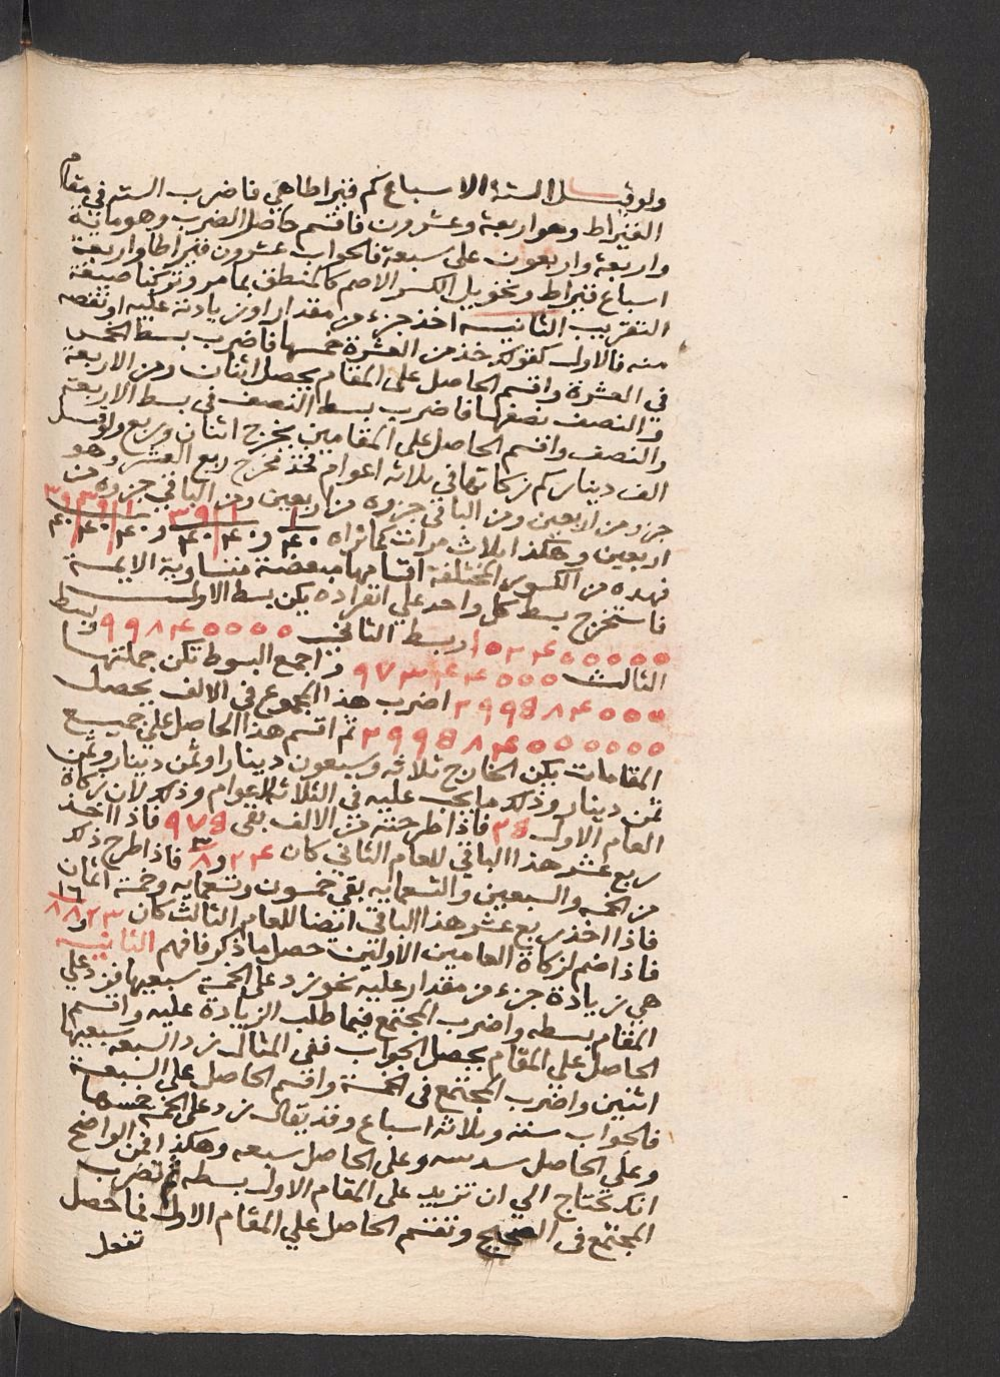 ولو قيل الستة الاسباع كم قيراطا هي فاضرب الستة في مقام
القيراط وهو اربعة وعشرون فاقسم حاصل الضرب وهو ماية
واربعة واربعون على سبعة فالجواب عشرون قيراطا واربعة
اسباع قيراط وتحويل الكسر الاصم كالمنطق بما مر وتركنا صيغة
التقريب الثانيه اخذ جزء من مقدار او زيادته عليه او نقصه
منه فالاول كقولك خذ من العشرة خمسها فاضرب بسط الخمس
في العشرة واقسم الحاصل على المقام يحصل اثنان ومن الاربعة
والنصف نصفها فاضرب بسط النصف في بسط الاربعة
والنصف واقسم الحاصل على المقامين يخرج اثنان وربع ولو قيل
الف دينار كم زكاتها في ثلاثة اعوام فخذ مخرج ربع العشر وهو
جزء من اربعين ومن الباقي جزوه من اربعين ومن الباقي جزوه من
اربعين وهكذا ثلاث مرات كما تراه ١/٤٠ و ١/٤٠ ٣٩/٤٠ و ١/٤٠ ٣٩/٤٠ ٣٩/٤٠
فهذه من الكسور المختلفة اقسامها مبعضة متساوية الايمة
فاستخرج بسط كل واحد على انفراده يكن بسط الاول
١٠٢٤٠٠٠٠٠ وبسط الثاني ٩٩٨٤٠٠٠٠ وبسط
الثالث ٩٧٣٤٤٠٠٠ واجمع البسوط تكن جملتها
٢٩٩٥٨٤٠٠٠ اضرب هذا المجموع في الالف يحصل
٢٩٩٥٨٤٠٠٠٠٠٠ ثم اقسم هذا الحاصل على جميع
المقامات يكن الخارج ثلاثه وسبعون دينارا وثمن دينار وثمن
ثمن دينار وذلك ما يجب عليه في الثلاثة الاعوام وذلك لان زكاة
العام الاول ٢٥ فاذا طرحته من الالف بقى ٩٧٥ فاذا اخذ
ربع عشر هذا الباقي للعام الثاني كان ٢٤ و ٣/٨ فاذا طرح ذلك
من الخمسه والسبعين والتسعمايه بقي خمسون وتسعمايه وخمسة اثمان
فاذا اخذ ربع عشر هذا الباقي ايضا للعام الثالث كان ٢٣ و
فاذا ضم لزكاة العامين الاولين حصل ما ذكر فافهم الثانيه
هي زيادة جزء من مقدار عليه نحو زد على الخمسة سبعيها فزد على
المقام بسطه واضرب المجتمع فيما طلب الزيادة عليه واقسم
الحاصل على المقام يحصل الجواب ففي المثال زد السبعه سبعيها
اثنين واضرب المجتمع في الخمسة واقسم الحاصل على السبعة
فالجواب ستة وثلاثة اسباع وقد يقال زد على الخمسة خمسها
وعلى الحاصل سدسه وعلى الحاصل سبعه وهكذا فمن الواضح
انك تحتاج الي ان تزيد على المقام الاول بسطه ثم تضرب
المجتمع في الصحيح وتقسم الحاصل علي المقام الاول فما حصل
تفعل